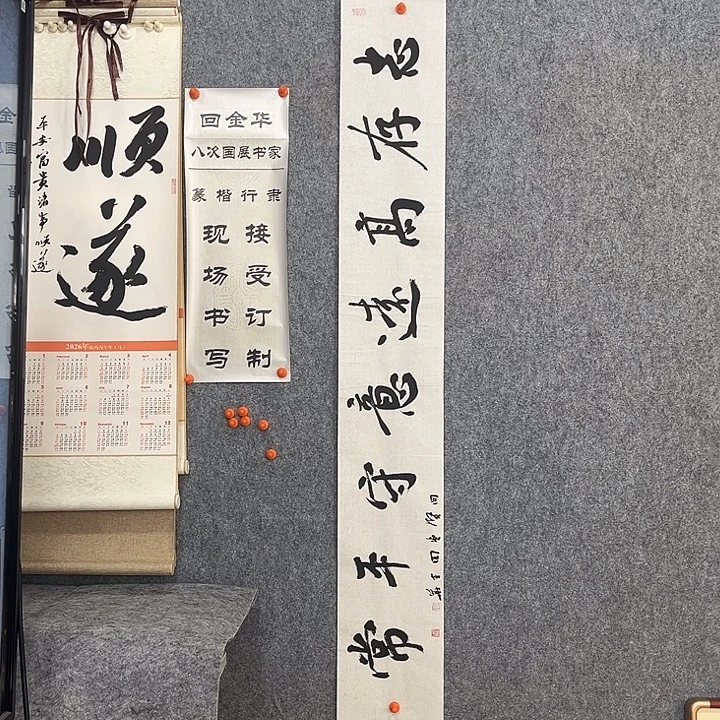 顺遂
平安富贵诸事顺遂
2026年
回金华
八次国展书家
篆楷行隶
现场书写
接受订制
志存高遠意守平常